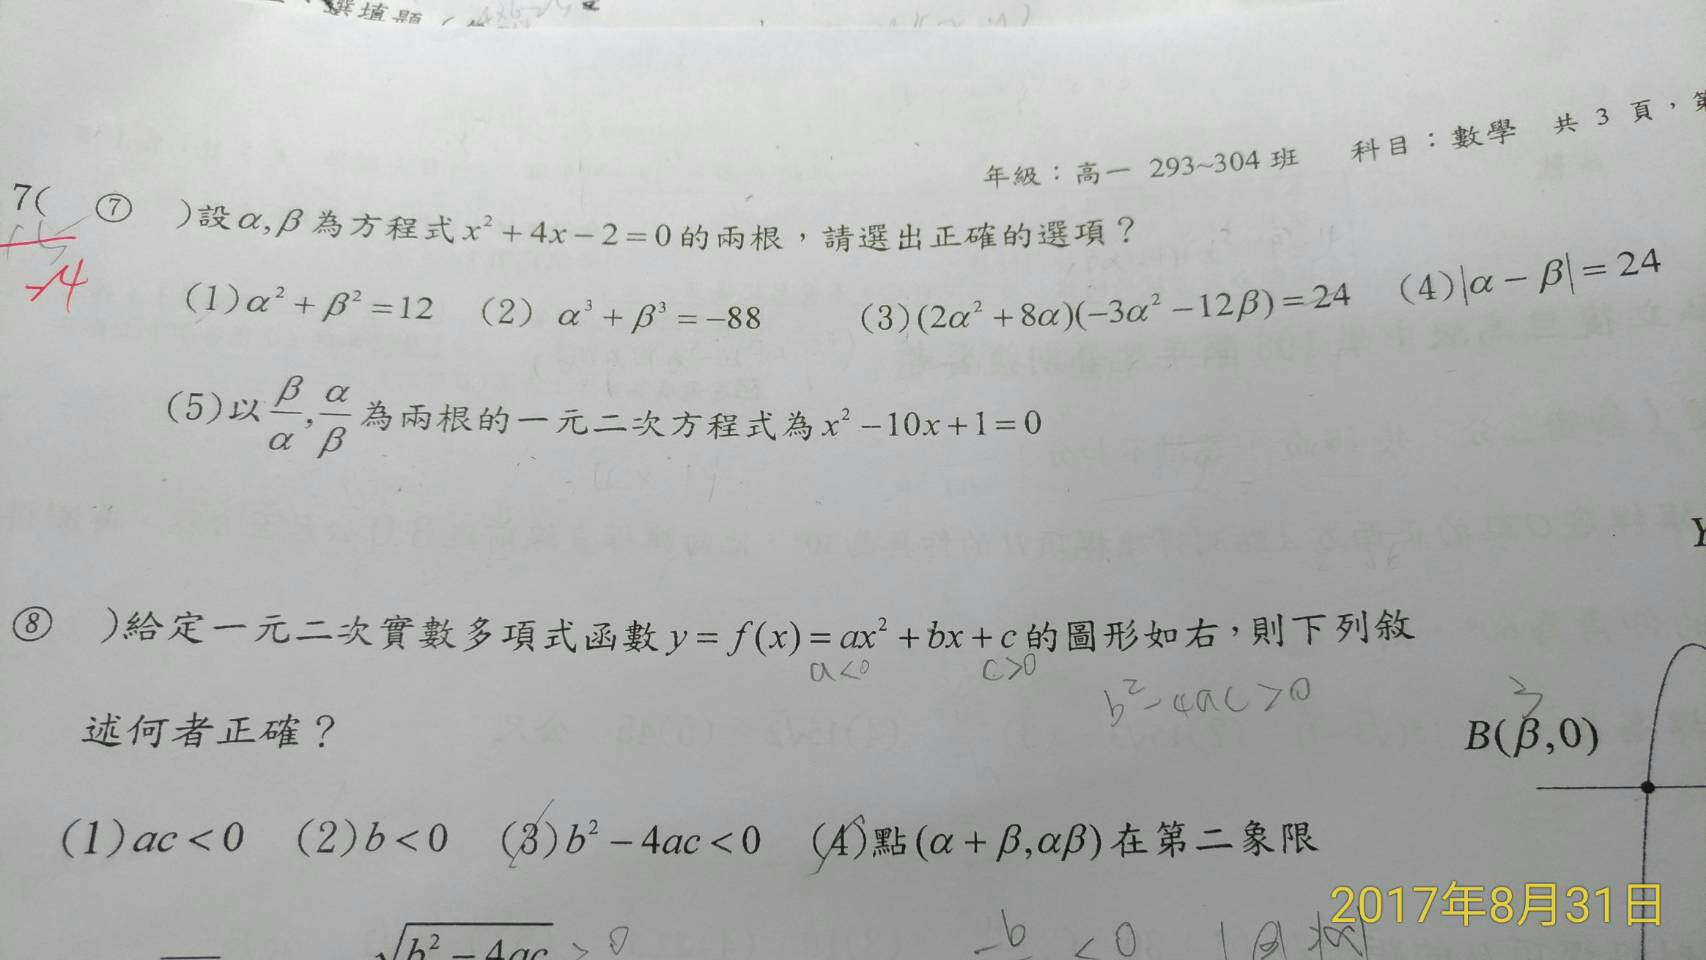 選填題
年級：高一 293~304 班 科目：數學 共 3 頁，第
7(
⑦ )設α,β為方程式x²+4x−2=0的兩根，請選出正確的選項？
-4
(1)α²+β²=12 (2) α³+β³=−88 (3)(2α²+8α)(−3α²−12β)=24 (4)|α−β|=24
(5)以β/α,α/β為兩根的一元二次方程式為x²−10x+1=0
Y
⑧ )給定一元二次實數多項式函數y=f(x)=ax²+bx+c的圖形如右，則下列敘
a<0 c>0
b²-4ac>0
述何者正確？
B(β,0)
(1)ac<0 (2)b<0 (3)b²−4ac<0 (4)點(α+β,αβ)在第二象限
2017年8月31日
√b²−4ac >0 -b <0